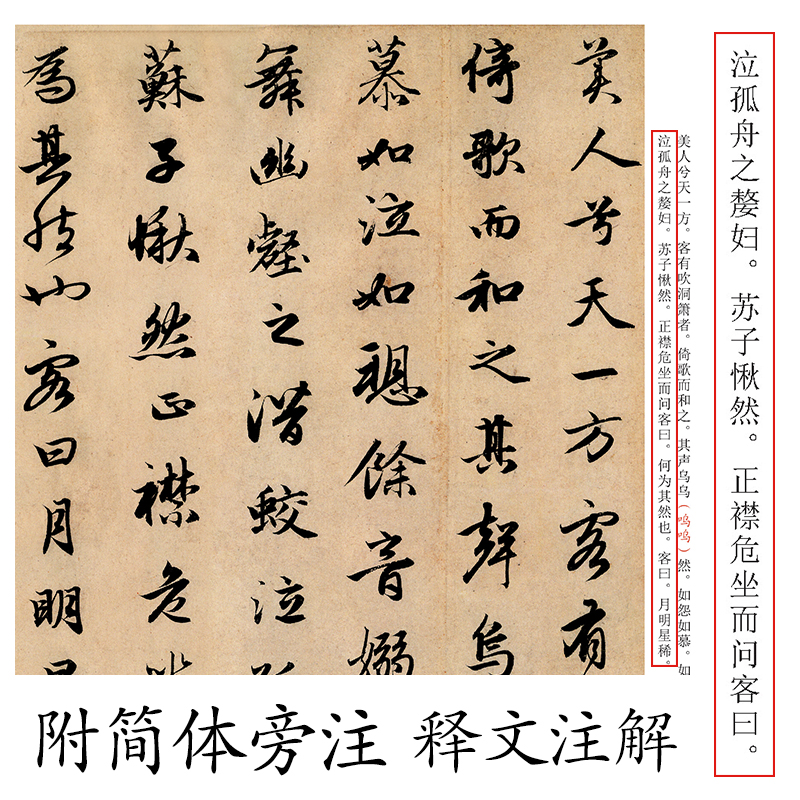 美人兮天一方客有
倚歌而和之其聲烏
慕如泣如愬餘音嫋
舞幽壑之潛蛟泣
蘇子愀然正襟危
為其然也客曰月明
美人兮天一方。客有吹洞箫者。倚歌而和之。其声乌乌（呜呜）然。如怨如慕。如
泣孤舟之嫠妇。苏子愀然。正襟危坐而问客曰。何为其然也。客曰。月明星稀。
泣孤舟之嫠妇。苏子愀然。正襟危坐而问客曰。
附简体旁注 释文注解